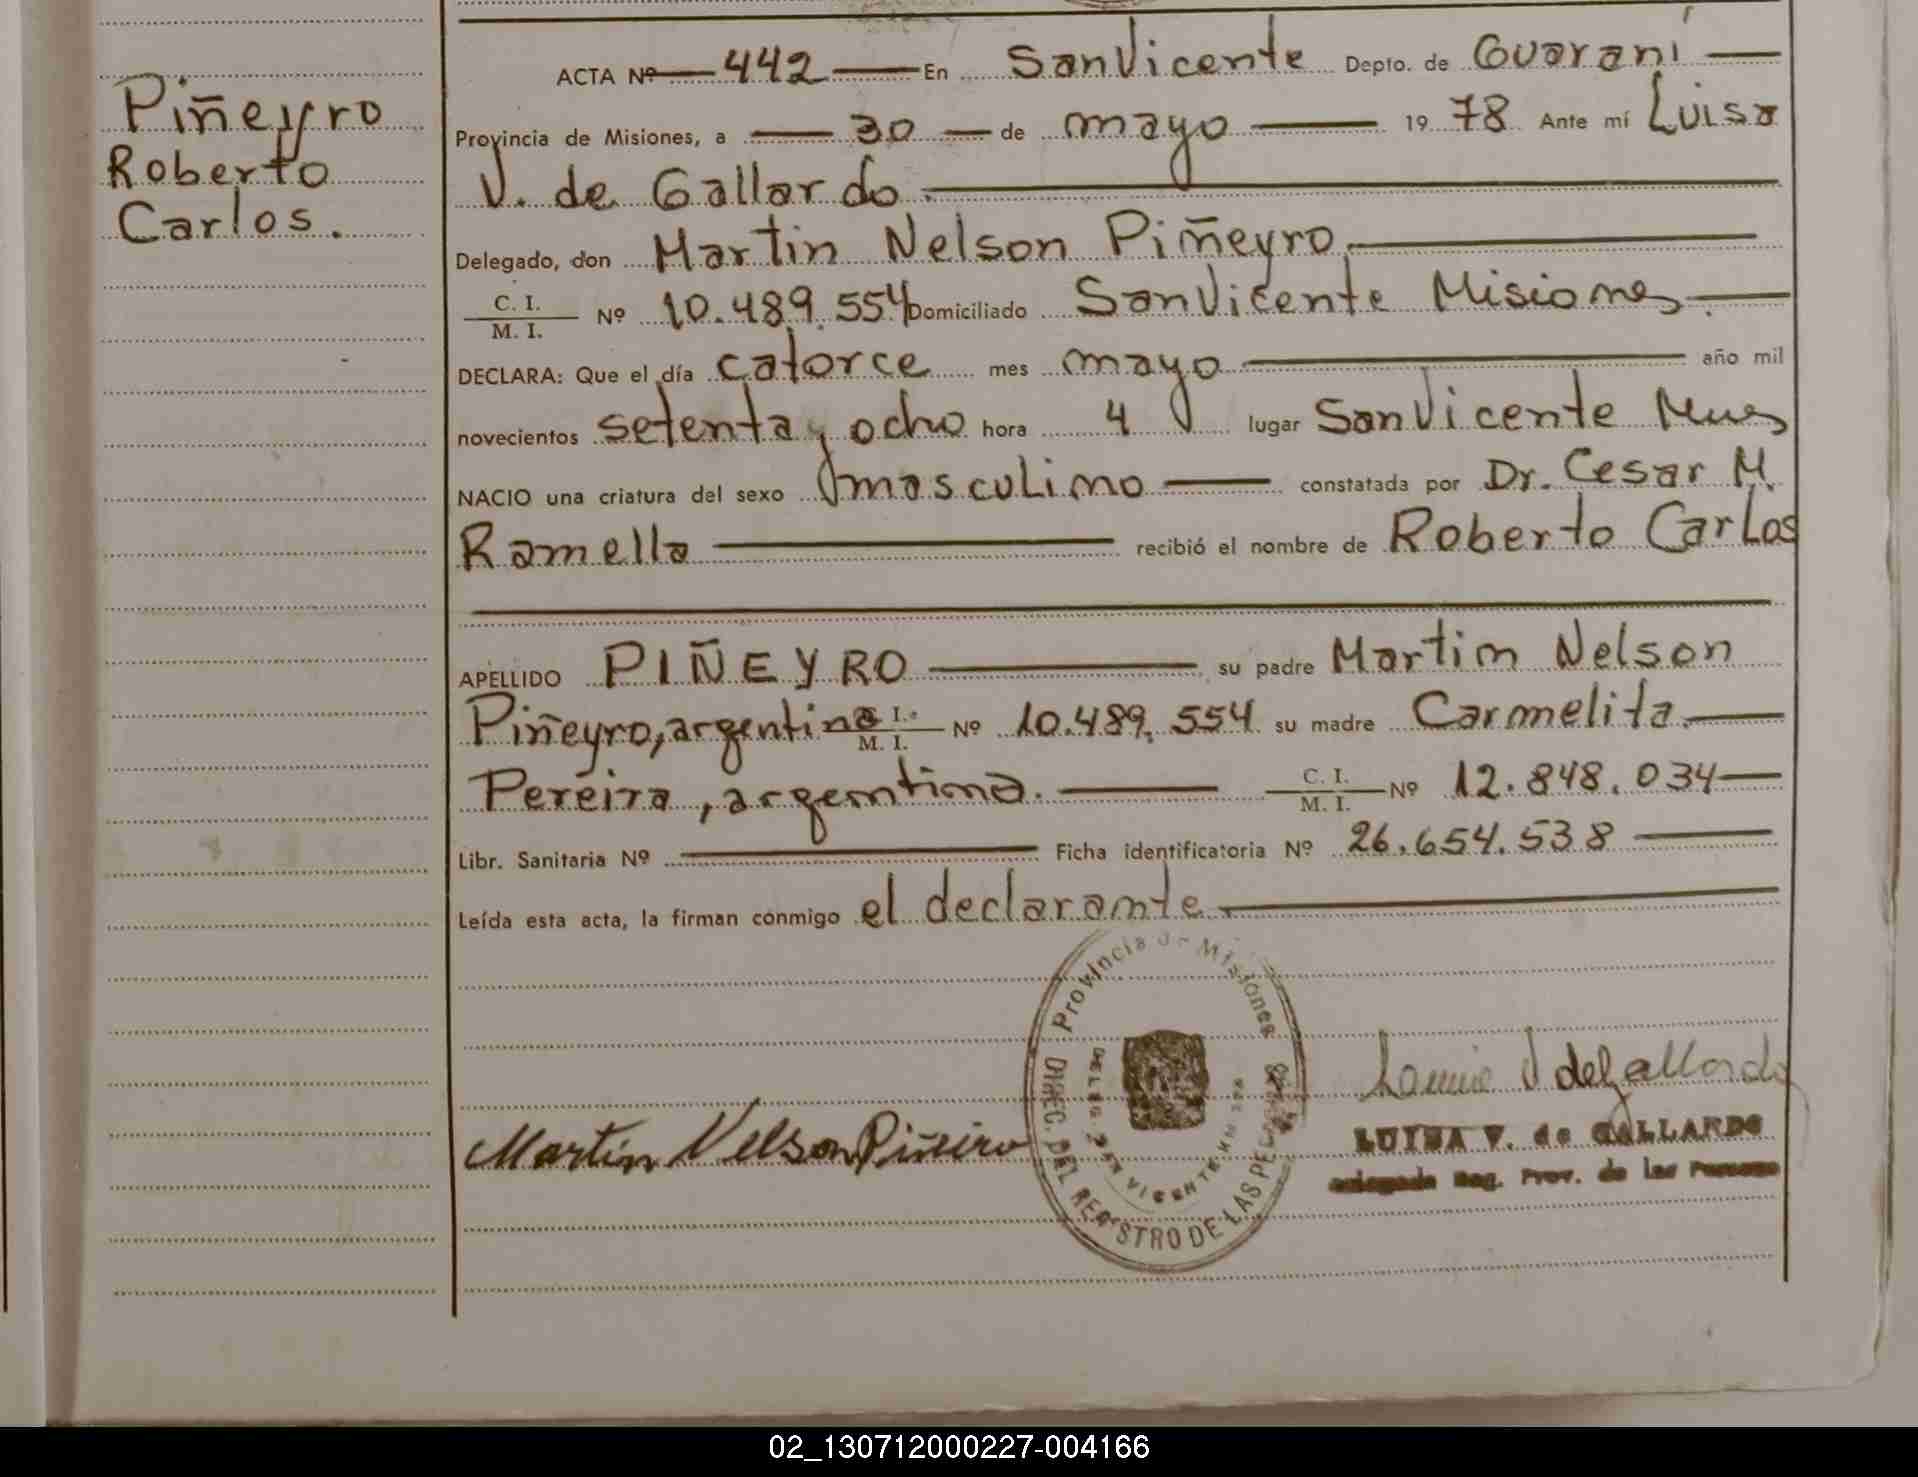 Piñeyro
Roberto
Carlos.
ACTA Nº 442 En San Vicente Depto. de Guaraní
Provincia de Misiones, a 30 de mayo 19 78 Ante mí Luisa
V. de Gallardo
Delegado, don Martin Nelson Piñeyro
C. I.
M. I. Nº 10.489.554 Domiciliado San Vicente Misiones
DECLARA: Que el día catorce mes mayo año mil
novecientos setenta y ocho hora 4 lugar San Vicente
NACIO una criatura del sexo masculino constatada por Dr. Cesar M.
Ramella recibió el nombre de Roberto Carlos
APELLIDO PIÑEYRO su padre Martin Nelson
Piñeyro, argentino I.
M. I. Nº 10.489.554 su madre Carmelita
Pereira, argentina. C. I.
M. I. Nº 12.848.034
Libr. Sanitaria Nº Ficha identificatoria Nº 26.654.538
Leída esta acta, la firman conmigo el declarante
Provincia de Misiones
DIREC. DEL REGISTRO DE LAS PERSONAS
DELEG. SAN VICENTE
Martín Nelson Piñeiro
V de Gallardo
LUISA V. de GALLARDO
Delegada Reg. Prov. de las Personas
02_130712000227-004166